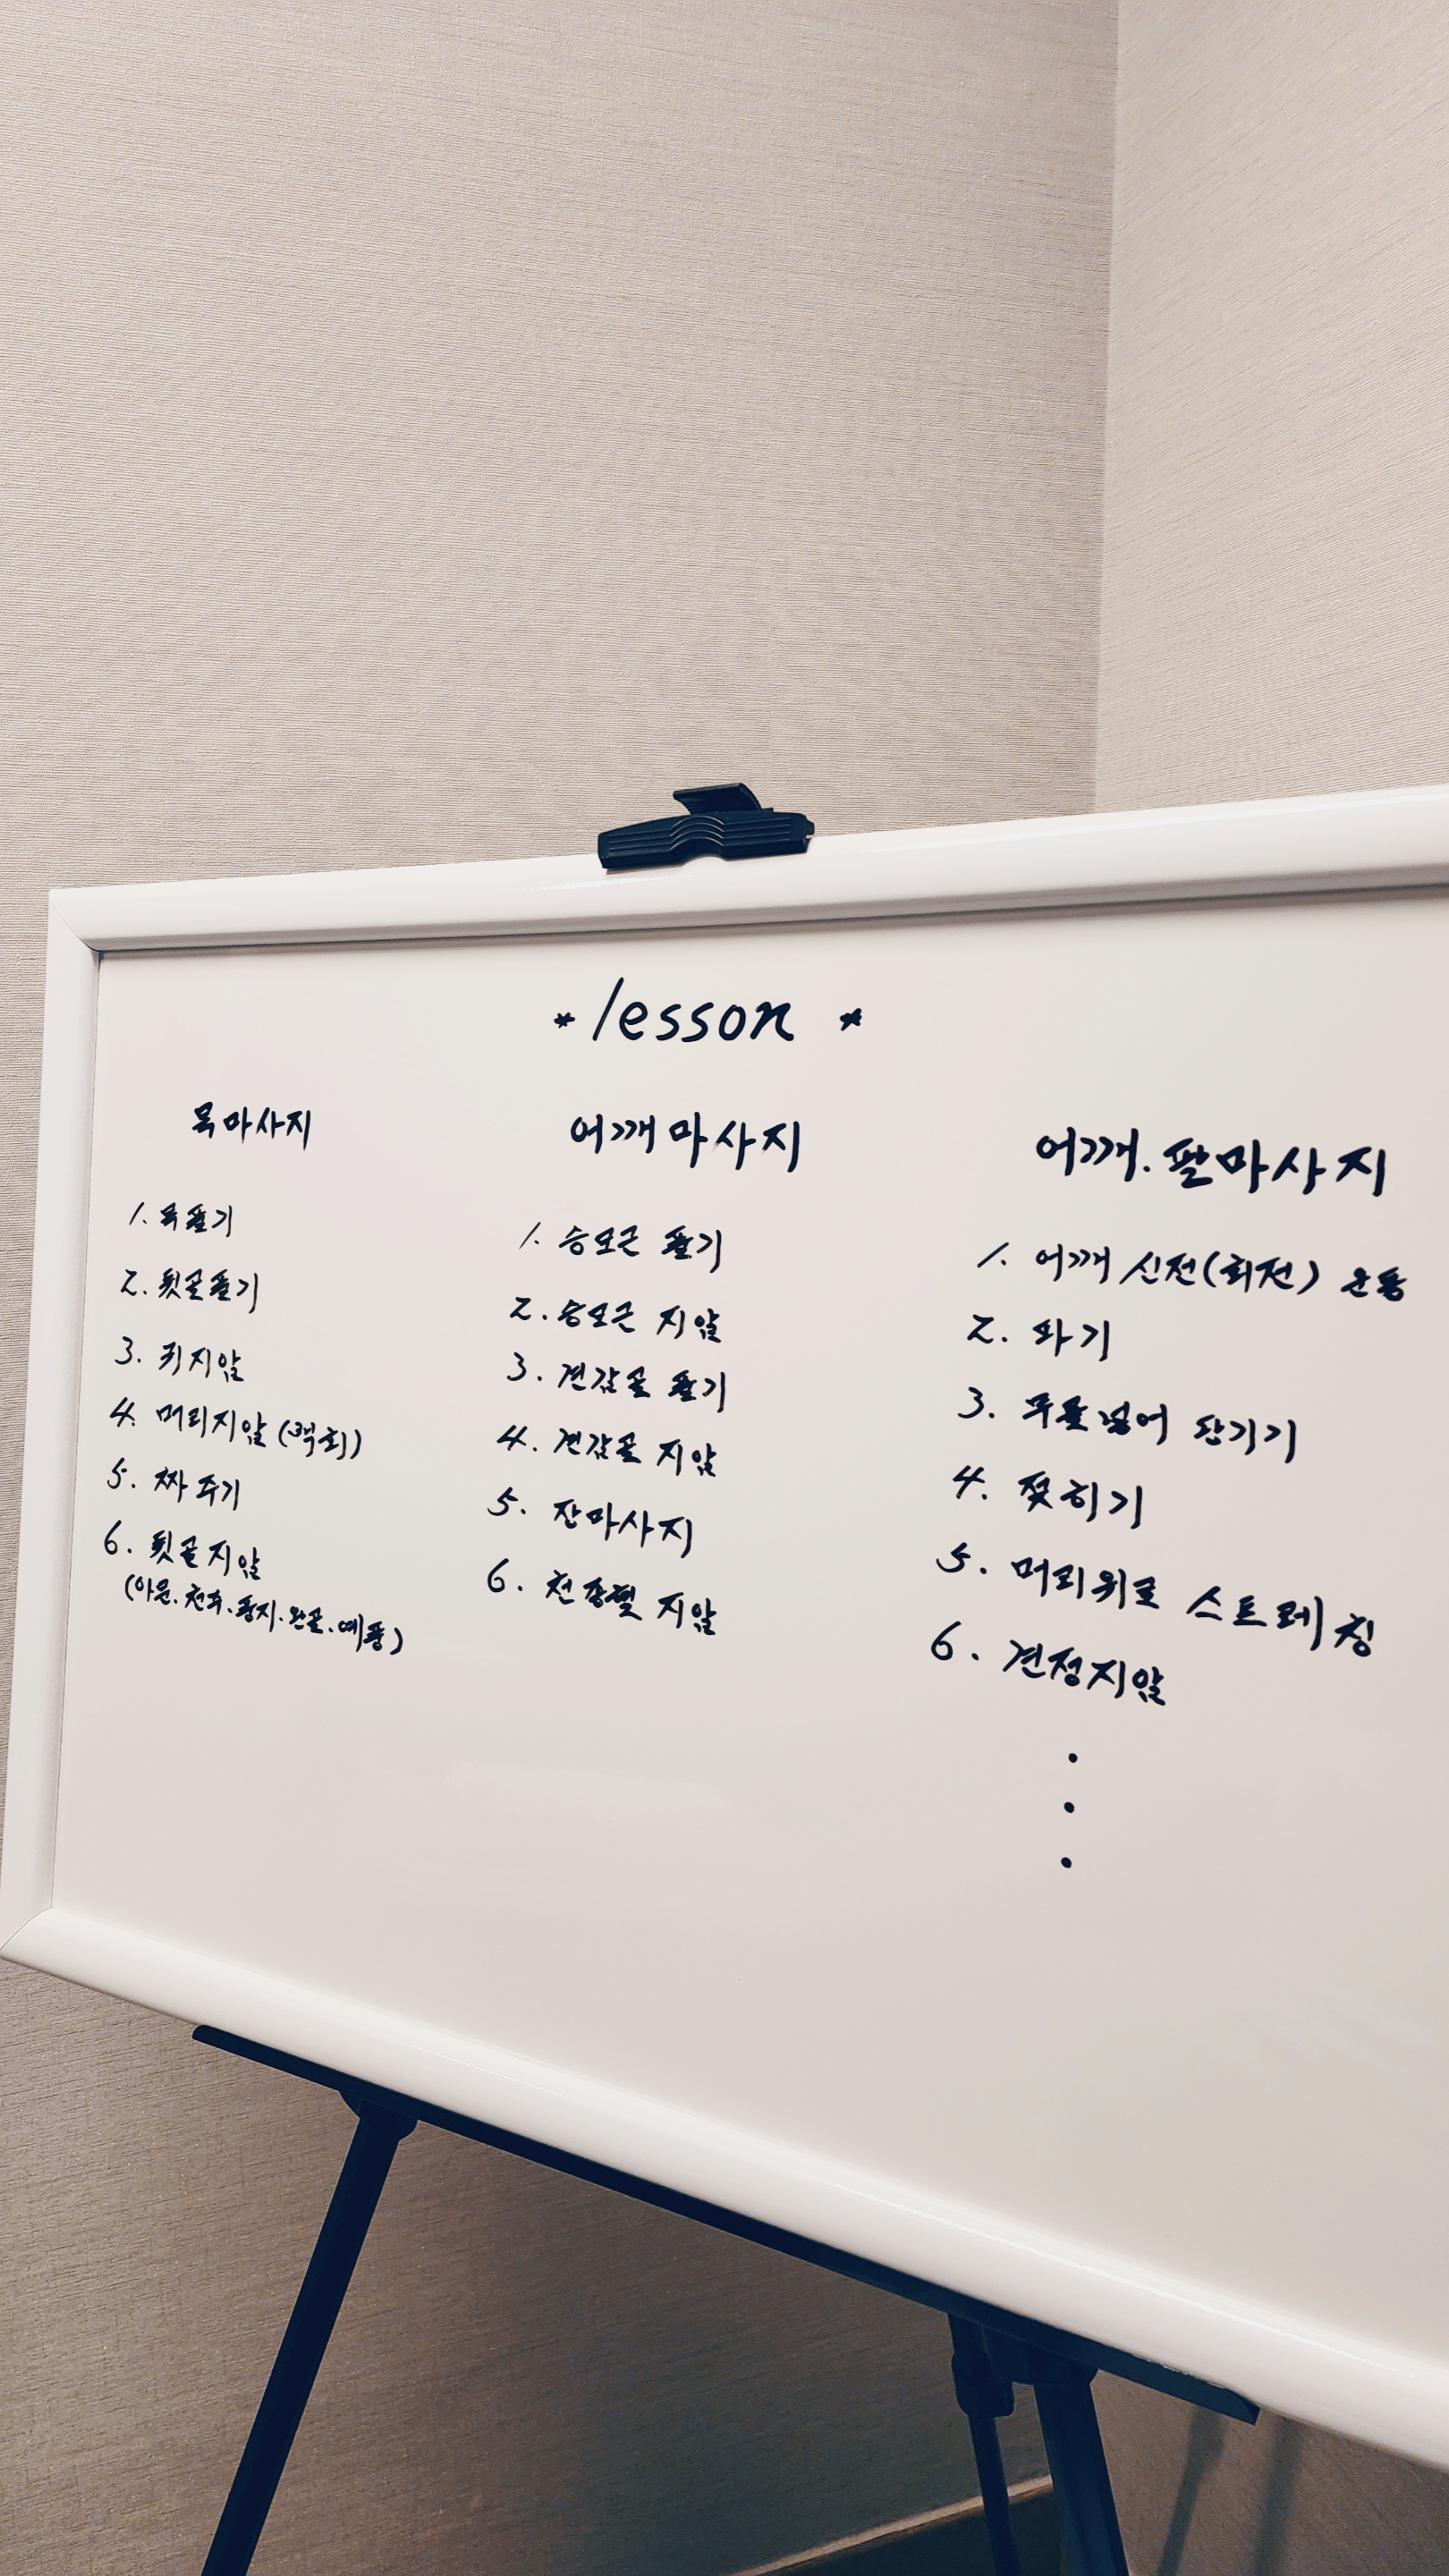 * lesson *
목마사지
1. 목풀기
2. 뒷골풀기
3. 귀지압
4. 머리지압 (백회)
5. 짜주기
6. 뒷골지압
(아문.천주.풍지.완골.예풍)
어깨마사지
1. 승모근 풀기
2. 승모근 지압
3. 견갑골 풀기
4. 견갑골 지압
5. 잔마사지
6. 천종혈 지압
어깨.팔마사지
1. 어깨 신전(회전) 운동
2. 파기
3. 무릎넘어 당기기
4. 젖히기
5. 머리위로 스트레칭
6. 견정지압